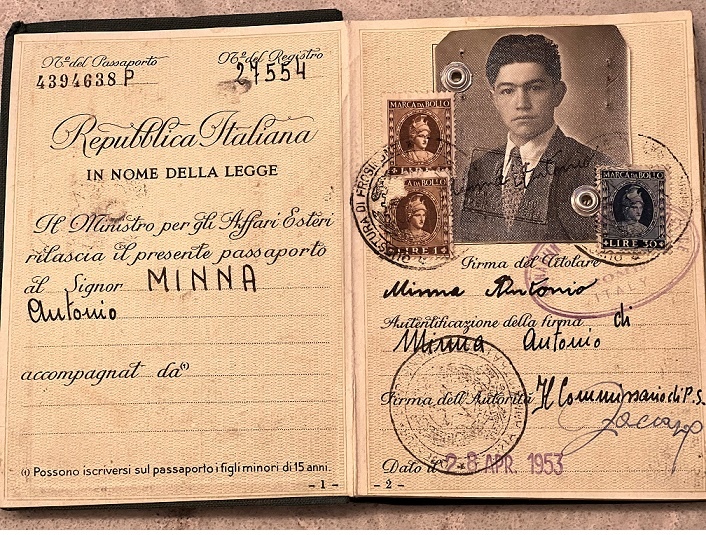 Nº del Passaporto
4394638 P
Nº del Registro
27554
Repubblica Italiana
IN NOME DELLA LEGGE
Il Ministro per gli Affari Esteri
rilascia il presente passaporto
al Signor MINNA
Antonio
accompagnat da(1)
(1) Possono iscriversi sul passaporto i figli minori di 15 anni.
- 1 -
MARCA DA BOLLO
LIRE 1
MARCA DA BOLLO
LIRE 1
MARCA DA BOLLO
LIRE 30
QUESTURA DI FROSINONE
Minna Antonio
ITALY
Firma del Titolare
Minna Antonio
Autentificazione della firma di
Minna Antonio
Firma dell'Autorità Il Commissario di P.S.
Dato il 28 APR. 1953
- 2 -